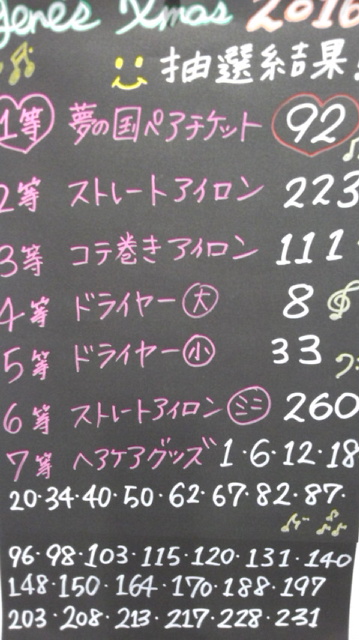 genes Xmas 2016
抽選結果!
1等 夢の国ペアチケット 92
2等 ストレートアイロン 223
3等 コテ巻きアイロン 111
4等 ドライヤー大 8
5等 ドライヤー小 33
6等 ストレートアイロンミニ 260
7等 ヘアケアグッズ 1・6・12・18
20・34・40・50・62・67・82・87・
96・98・103・115・120・131・140
148・150・164・170・188・197
203・208・213・217・228・231